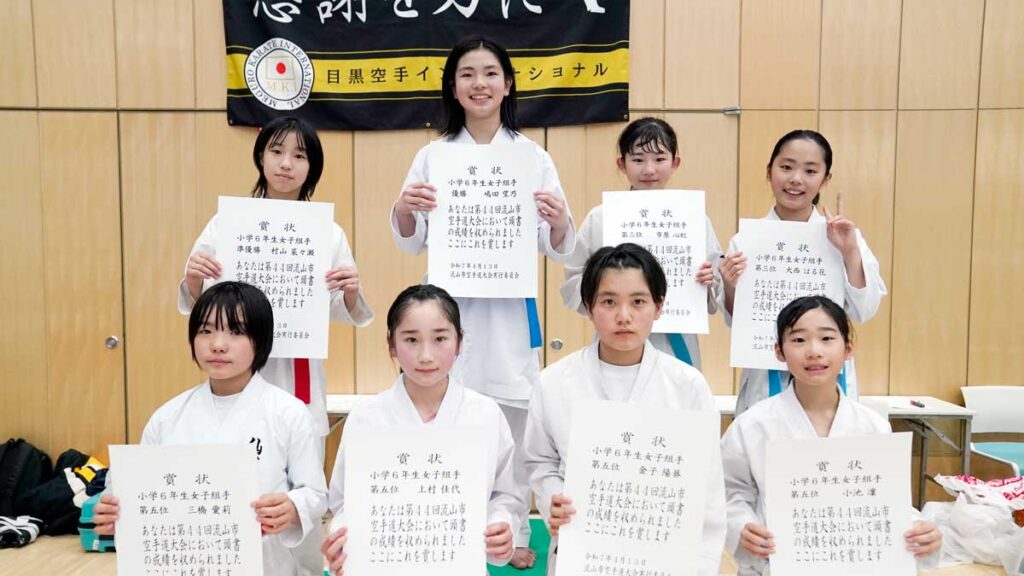 感謝を力に
MEGURO KARATE INTERNATIONAL
M.K.I
目黒空手インターナショナル
賞状
小学6年生女子組手
準優勝 村山 菜々瀬
あなたは第44回流山市
空手道大会において頭書
の成績を収められました
ここにこれを賞します
賞状
小学6年生女子組手
優勝 嶋田 望乃
あなたは第44回流山市
空手道大会において頭書
の成績を収められました
ここにこれを賞します
令和7年4月13日
流山市空手道大会実行委員会
賞状
小学6年生女子組手
第三位 市原 心虹
あなたは第44回流山市
空手道大会において頭書
賞状
小学6年生女子組手
第三位 大西 はる花
あなたは第44回流山市
空手道大会において頭書
の成績を収められました
賞状
小学6年生女子組手
第五位 三橋 愛莉
あなたは第44回流山市
空手道大会において頭書
の成績を収められました
ここにこれを賞します
賞状
小学6年生女子組手
第五位 上村 佳代
あなたは第44回流山市
空手道大会において頭書
の成績を収められました
ここにこれを賞します
賞状
小学6年生女子組手
第五位 金子 陽藤
あなたは第44回流山市
空手道大会において頭書
の成績を収められました
ここにこれを賞します
令和7年4月13日
流山市空手道大会実行委員会
賞状
小学6年生女子組手
第五位 小池 凜
あなたは第44回流山市
空手道大会において頭書
の成績を収められました
ここにこれを賞します